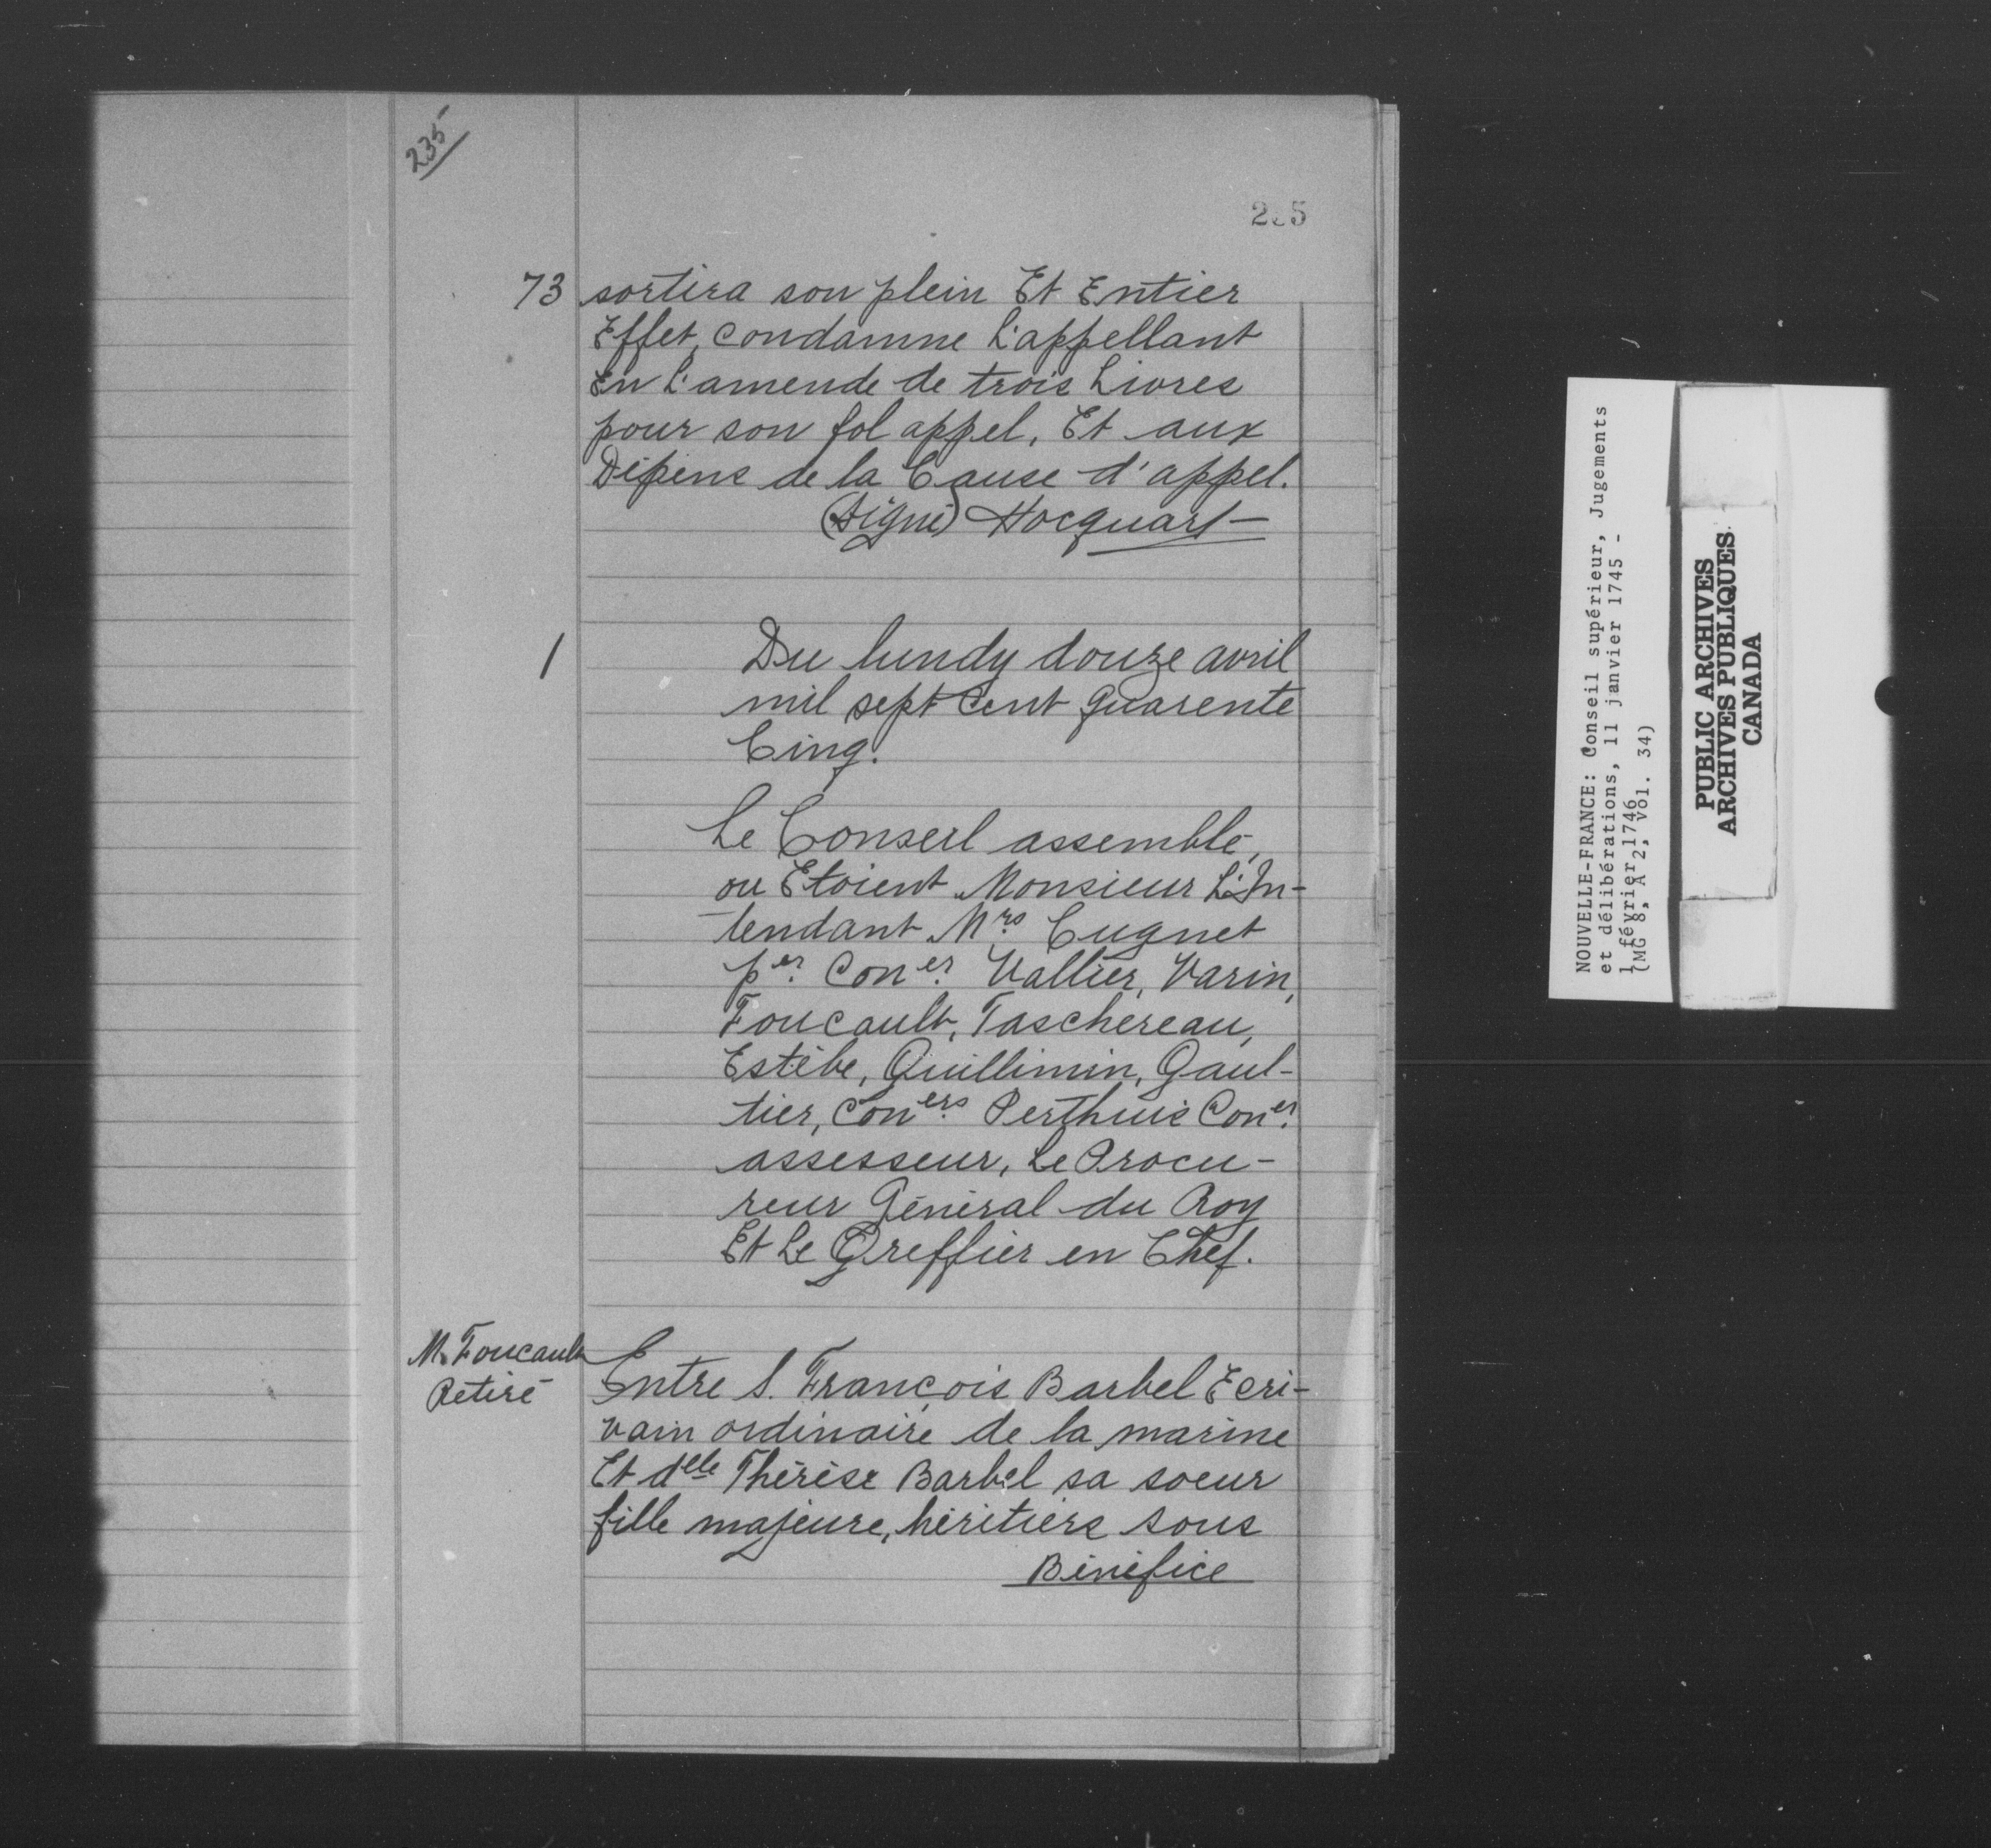 235
73 sortira son plein Et Entier
Effet, condamne L'appellant
En L'amende de trois Livres
pour son fol appel, Et aux
Dépens de la Cause d'appel.
(Signé) Hocquart
1 Du lundy douze avril
mil sept Cent quarente
Cinq.
Le Conseil assemblé,
ou Etoient Monsieur L'In-
tendant Mrs. Cugnet
per. Coner. Vallier, Varin,
Foucault, Taschereau,
Estèbe, Guillimin, Gaul-
tier, Coners. Perthuis Coner.
assesseur, Le Procu-
reur Général du Roy
Et Le Greffier en Chef.
M. Foucault
Retiré
Entre S. François Barbel Ecri-
vain ordinaire de la marine
Et delle Thérèse Barbel sa soeur
fille majeure, héritiers sous
Bénéfice
NOUVELLE-FRANCE: Conseil supérieur, Jugements
et délibérations, 11 janvier 1745 -
1 février 1746
(MG 8, A 2, vol. 34)
PUBLIC ARCHIVES
ARCHIVES PUBLIQUES
CANADA